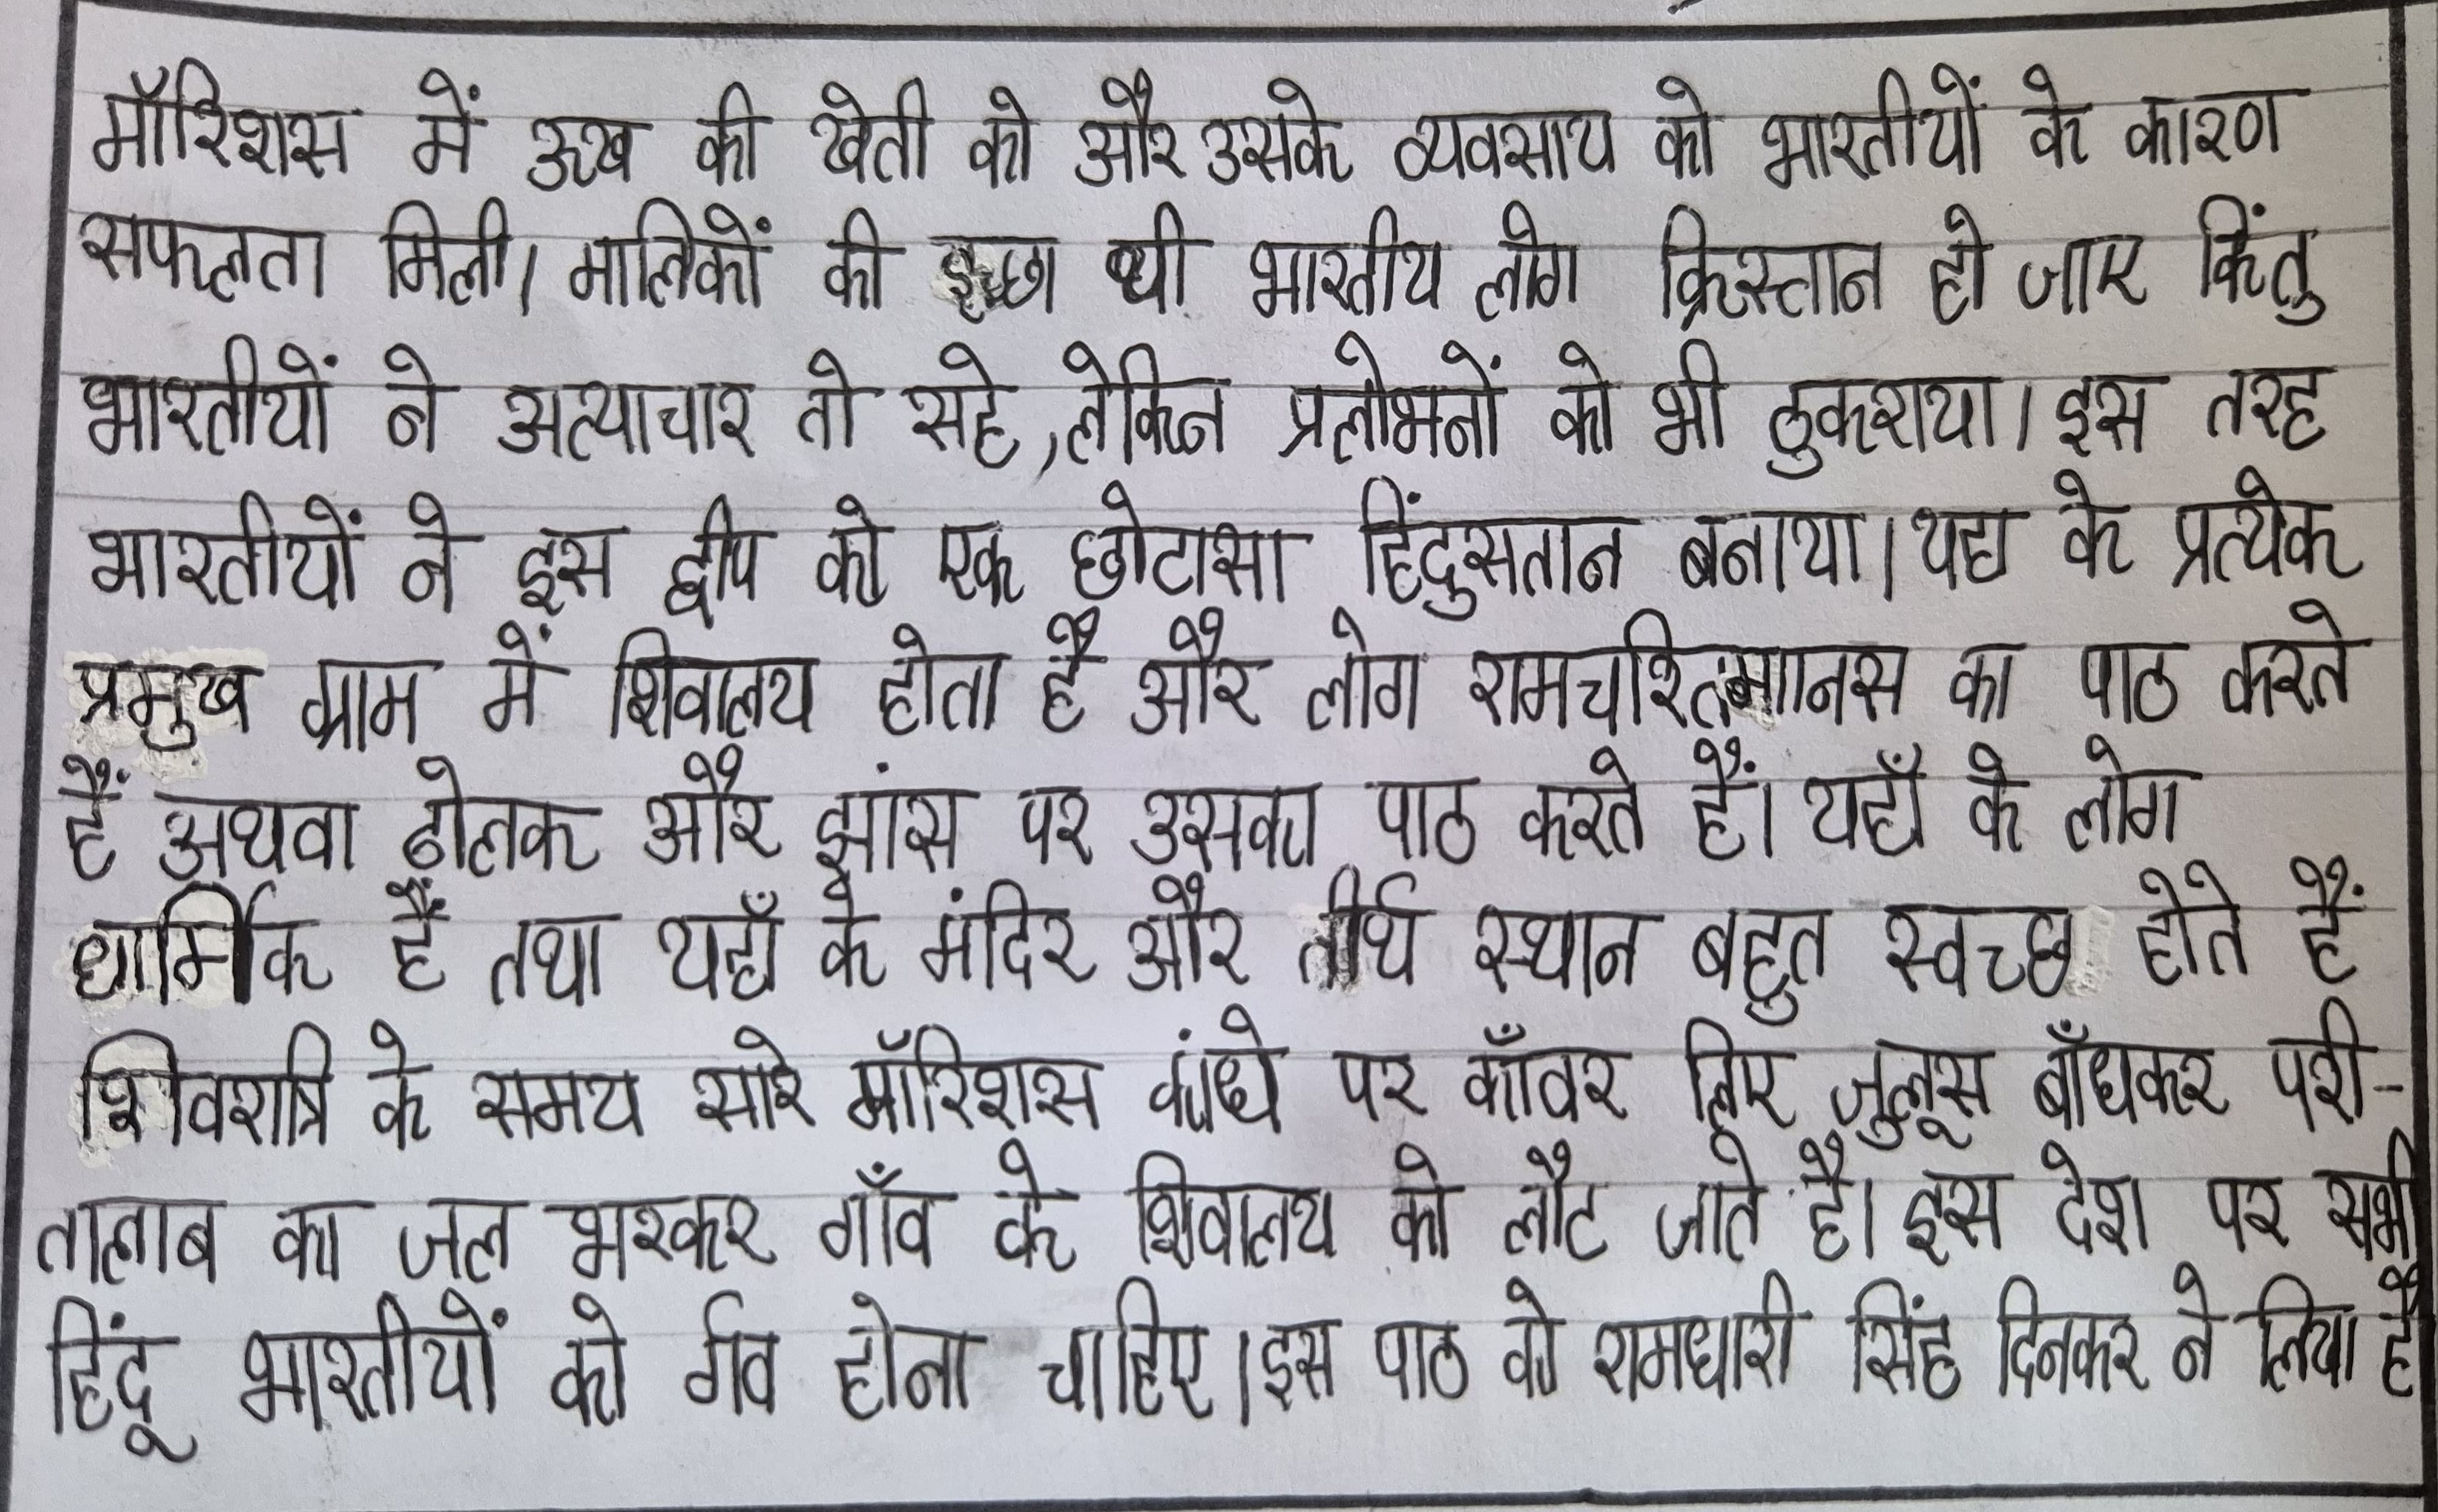 मॉरिशस में ऊख की खेती को और उसके व्यवसाय को भारतीयों के कारण
सफलता मिली। मालिकों की इच्छा थी भारतीय लोग क्रिस्तान हो जाए किंतु
भारतीयों ने अत्याचार तो सहे, लेकिन प्रलोभनों को भी ठुकराया। इस तरह
भारतीयों ने इस द्वीप को एक छोटासा हिंदुसतान बनाया। यहा के प्रत्येक
प्रमुख ग्राम में शिवालय होता है और लोग रामचरितमानस का पाठ करते
हैं अथवा ढोलक और झांस पर उसका पाठ करते हैं। यहाँ के लोग
धार्मिक हैं तथा यहाँ के मंदिर और तीर्थ स्थान बहुत स्वच्छ होते हैं
शिवरात्रि के समय सारे मॉरिशस कांधे पर काँवर लिए जुलूस बाँधकर परी-
तालाब का जल भरकर गाँव के शिवालय को लौट जाते है। इस देश पर सभी
हिंदू भारतीयों को र्गव होना चाहिए। इस पाठ को रामधारी सिंह दिनकर ने लिया है